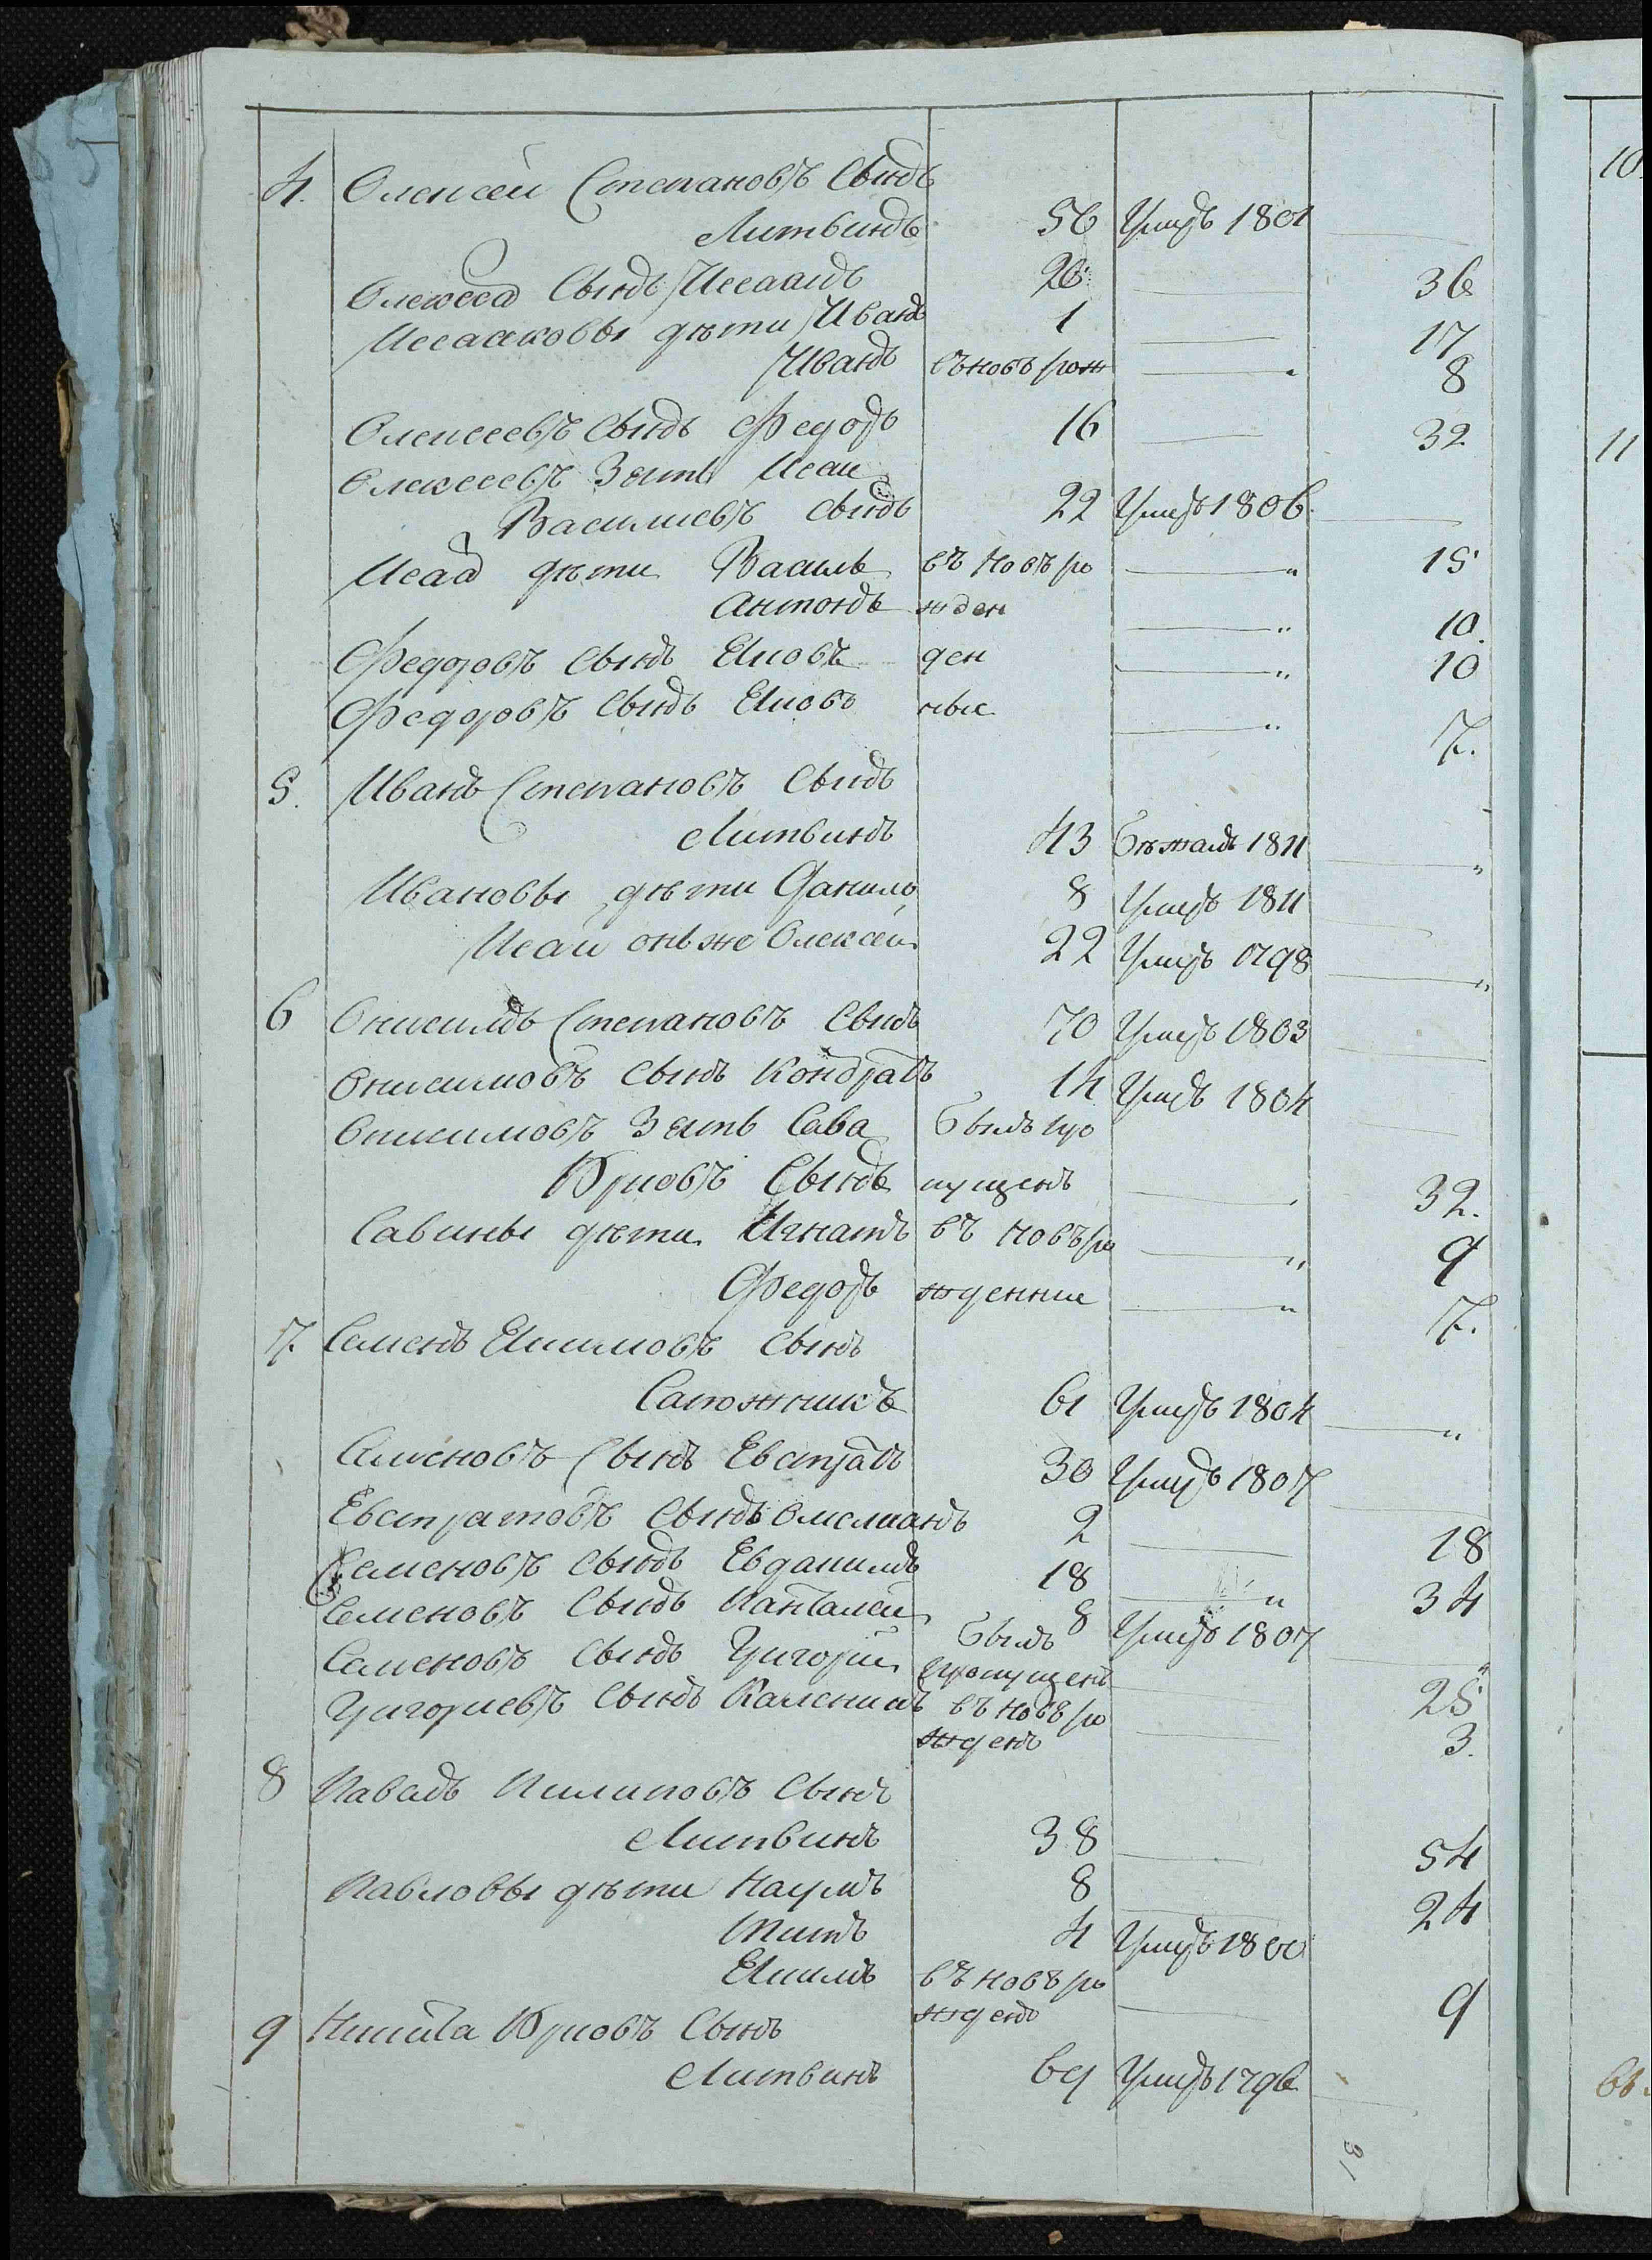 4. Олексей Степановъ Сынъ
Литвинъ 56 Умръ 1801
Олексеа Сынъ Исаакъ 20 36
Исааковы дѣти Иванъ 1 17
Иванъ въновъ рож 8
Олексеевъ Сынъ Федоръ 16 32
Олексеевъ Зять Исаи
Василиевъ Сынъ 22 Умръ 1806
Исаа дѣти Василь въ Новъ ро 15
Антонъ жден 10.
Федоровъ Сынъ Яковъ ден 10
Федоровъ Сынъ Яковъ ные 7.
5. Иванъ Степановъ Сынъ
Литвинъ 43 Бѣжалъ 1811
Ивановы дѣти Данило 8 Умръ 1811
Исаи онъже Олексеи 22 Умръ 1798
6 Онисимъ Степановъ Сынъ 70 Умръ 1803
Онисимовъ Сынъ Кондратъ 14 Умръ 1804
Онисимовъ Зять Сава Былъ про
Юрковъ Сынъ пущенъ 32.
Савины дѣти Игнатъ въ новъ ро 9
Федоръ жденные 7.
7. Семенъ Якимовъ Сынъ
Сапожникъ 61 Умръ 1804
Семеновъ Сынъ Евстратъ 30 Умръ 1807
Евстратовъ Сынъ Омелианъ 2 18
Семеновъ Сынъ Евданимъ 18 34
Семеновъ Сынъ Панталеи 8 Умръ 1807
Семеновъ Сынъ Григории Былъ пропущенъ 25
Григориевъ Сынъ Каленикъ въ новъ ро 3.
жденъ
8 Павалъ Пилиповъ Сынъ
Литвинъ 38 54
Павловы дѣти Наумъ 8 24
Титъ 4 Умръ 1800
Якимъ въ новъ ро
жденъ 9
9 Никита Юрковъ Сынъ
Литвинъ 69 Умръ 1796
10.
11